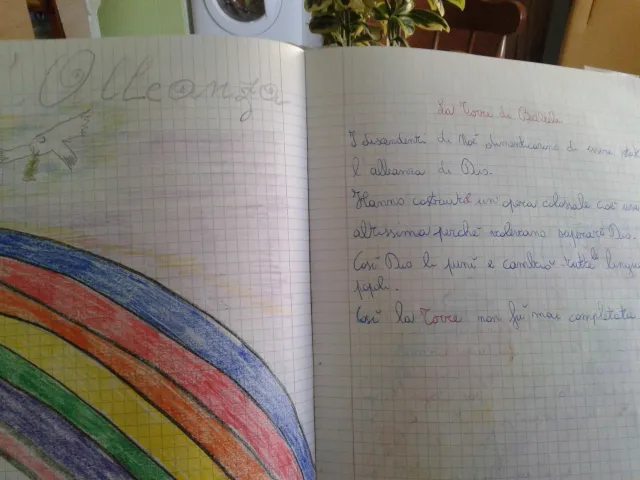 L'Alleanza
La Torre di Babele
I discendenti di Noè dimenticarono di essere
l alleanza di Dio.
Hanno costruito un'opera colossale così una
altissima perché volevano superare Dio.
Così Dio li punì e cambiò tutte lingue
popoli.
Così la Torre non fù mai completata